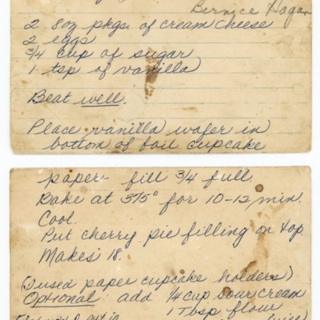 Bernice Hogan
2 8oz pkgs. of cream cheese
2 eggs
3/4 cup of sugar
1 tsp of vanilla
Beat well.
Place vanilla wafer in
bottom of foil cupcake
paper - fill 3/4 full
Bake at 375° for 10-12 min.
Cool.
Put cherry pie filling on top
Makes 18.
(I used paper cupcake holders)
Optional add 1/4 cup sour cream
1 Tbsp flour